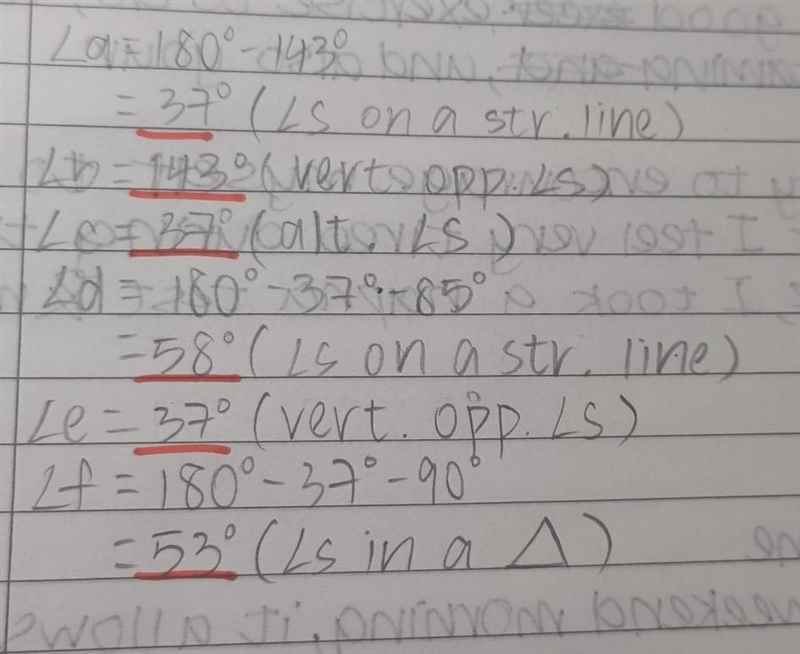 ∠a=180°-143°
=37° (∠s on a str. line)
∠b=143° (vert. opp. ∠s)
∠c=37° (alt. ∠s)
∠d=180°-37°-85°
=58° (∠s on a str. line)
∠e=37° (vert. opp. ∠s)
∠f=180°-37°-90°
=53° (∠s in a △)